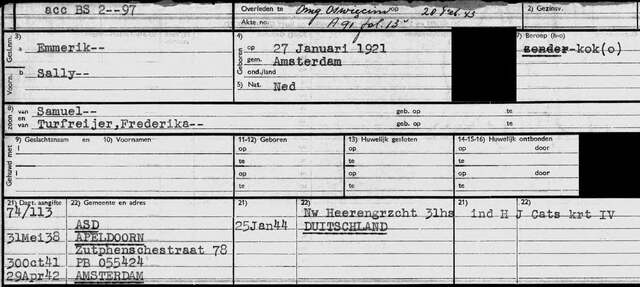 acc BS 2--97
Overleden te Omg Oswiecim op 20 Feb. 43
Akte. no. A 91 fol. 13
2) Gezinsv.
Geslan.
3)
a Emmerik--
Voorn.
b Sally--
4)
Geboren
op 27 Januari 1921
gem. Amsterdam
ond./land
5) Nat. Ned
7) Beroep (h-o)
zonder-kok(o)
8)
zoon van en van
Samuel-- geb. op te
Turfreijer,Frederika-- geb. op te
Gehuwd met
9) Geslachtsnaam en 10) Voornamen
11-12) Geboren
13) Huwelijk gesloten
14-15-16) Huwelijk ontbonden
1 op op op door
te te te
1 op op op door
te te te
21) Dagt. aangifte 22) Gemeente en adres 21) 22)
74/113 Nw Heerengrzcht 31hs ind H J Cats krt IV
ASD 25Jan44 DUITSCHLAND
31Mei38 APELDOORN
Zutphenschestraat 78
30Oct41 PB 055424
29Apr42 AMSTERDAM